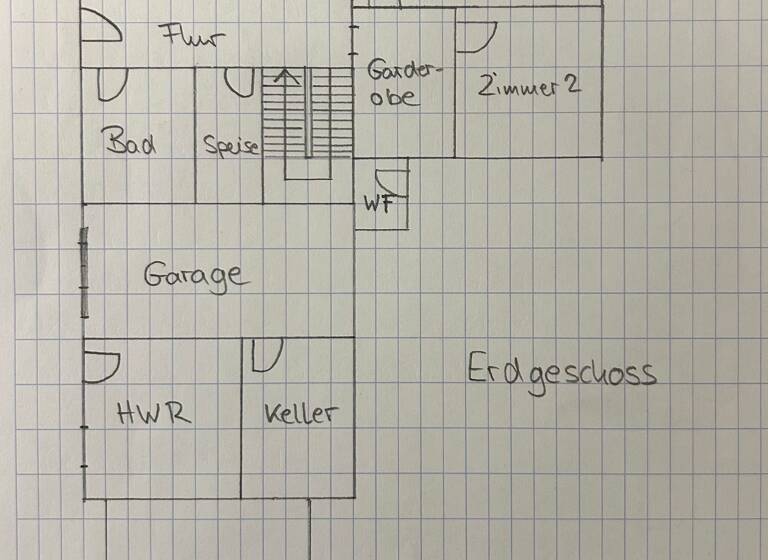 Flur
Garder-
obe
Zimmer 2
Bad
Speise
WF
Garage
Erdgeschoss
HWR
Keller